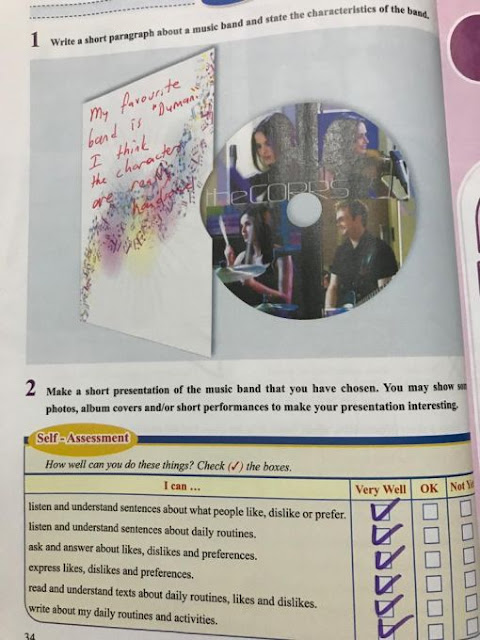 1 Write a short paragraph about a music band and state the characteristics of the band.
My favourite
band is "Duman"
I think
the characters
are really
handsome
the CORRS
2 Make a short presentation of the music band that you have chosen. You may show
photos, album covers and/or short performances to make your presentation interesting.
Self - Assessment
How well can you do these things? Check (✓) the boxes.
I can ... Very Well OK Not
listen and understand sentences about what people like, dislike or prefer.
listen and understand sentences about daily routines.
ask and answer about likes, dislikes and preferences.
express likes, dislikes and preferences.
read and understand texts about daily routines, likes and dislikes.
write about my daily routines and activities.
34